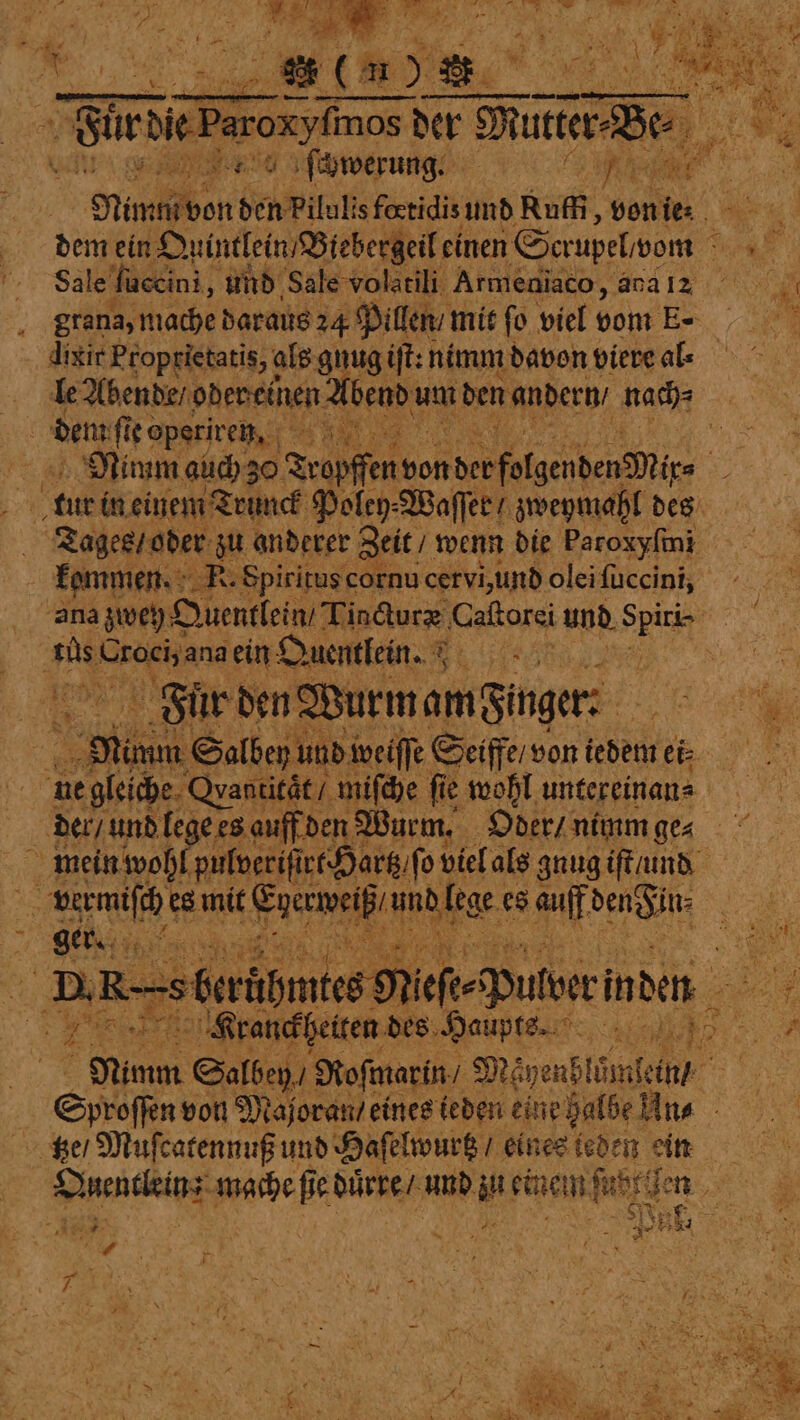 ( 11 )
Für die Paroxyſmos der Mutter-Be-
ſchwerung.
Nimm von den Pilulis fœtidis und Ruffi, von ie-
dem ein Quintlein/Biebergeil einen Scrupel/vom
Sale ſuccini, und Sale volatili Armeniaco, ana 12
grana, mache daraus 24 Pillen/ mit ſo viel vom E-
lixir Proprietatis, als gnug iſt: nimm davon viere al-
le Abende/ oder einen Abend um den andern/ nach-
dem ſie operiren.
Nimm auch 30 Tropffen von der folgenden Mix-
tur in einem Trunck Poley-Waſſer/ zweymahl des
Tages/ oder zu anderer Zeit/ wenn die Paroxyſmi
kommen. R. Spiritus cornu cervi, und olei ſuccini,
ana zwey Quentlein/ Tincturæ Caſtorei und Spiri-
tûs Croci, ana ein Quentlein.
Für den Wurm am Finger.
Nimm Salbey und weiſſe Seiffe/ von iedem ei-
ne gleiche Qvantität/ miſche ſie wohl untereinan-
der/ und lege es auff den Wurm. Oder/ nimm ge-
mein wohl pulveriſirt Hartz/ ſo viel als gnug iſt/ und
vermiſch es mit Eyerweiß/ und lege es auff den Fin-
ger.
D. R---s berühmtes Nieſe-Pulver in den
Kranckheiten des Haupts.
Nimm Salbey/ Roſmarin/ Mäyenblümlein/
Sproſſen von Majoran/ eines ieden eine halbe Un-
tze/ Muſcatennuß und Haſelwurtz/ eines ieden ein
Quentlein: mache ſie dürre/ und zu einem ſubtilen
Pul-